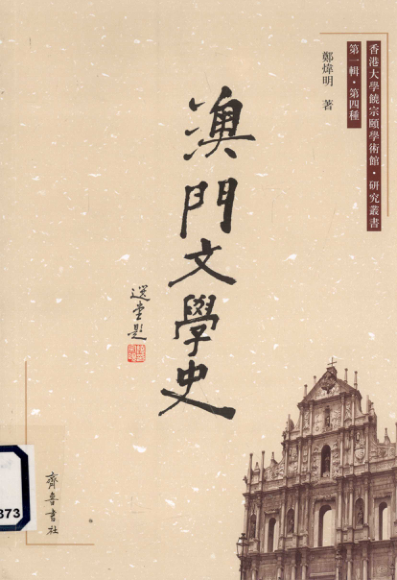 香港大學饒宗頤學術館·研究叢書
第一輯·第四種
鄭煒明 著
澳門文學史
選堂題
齊魯書社
373